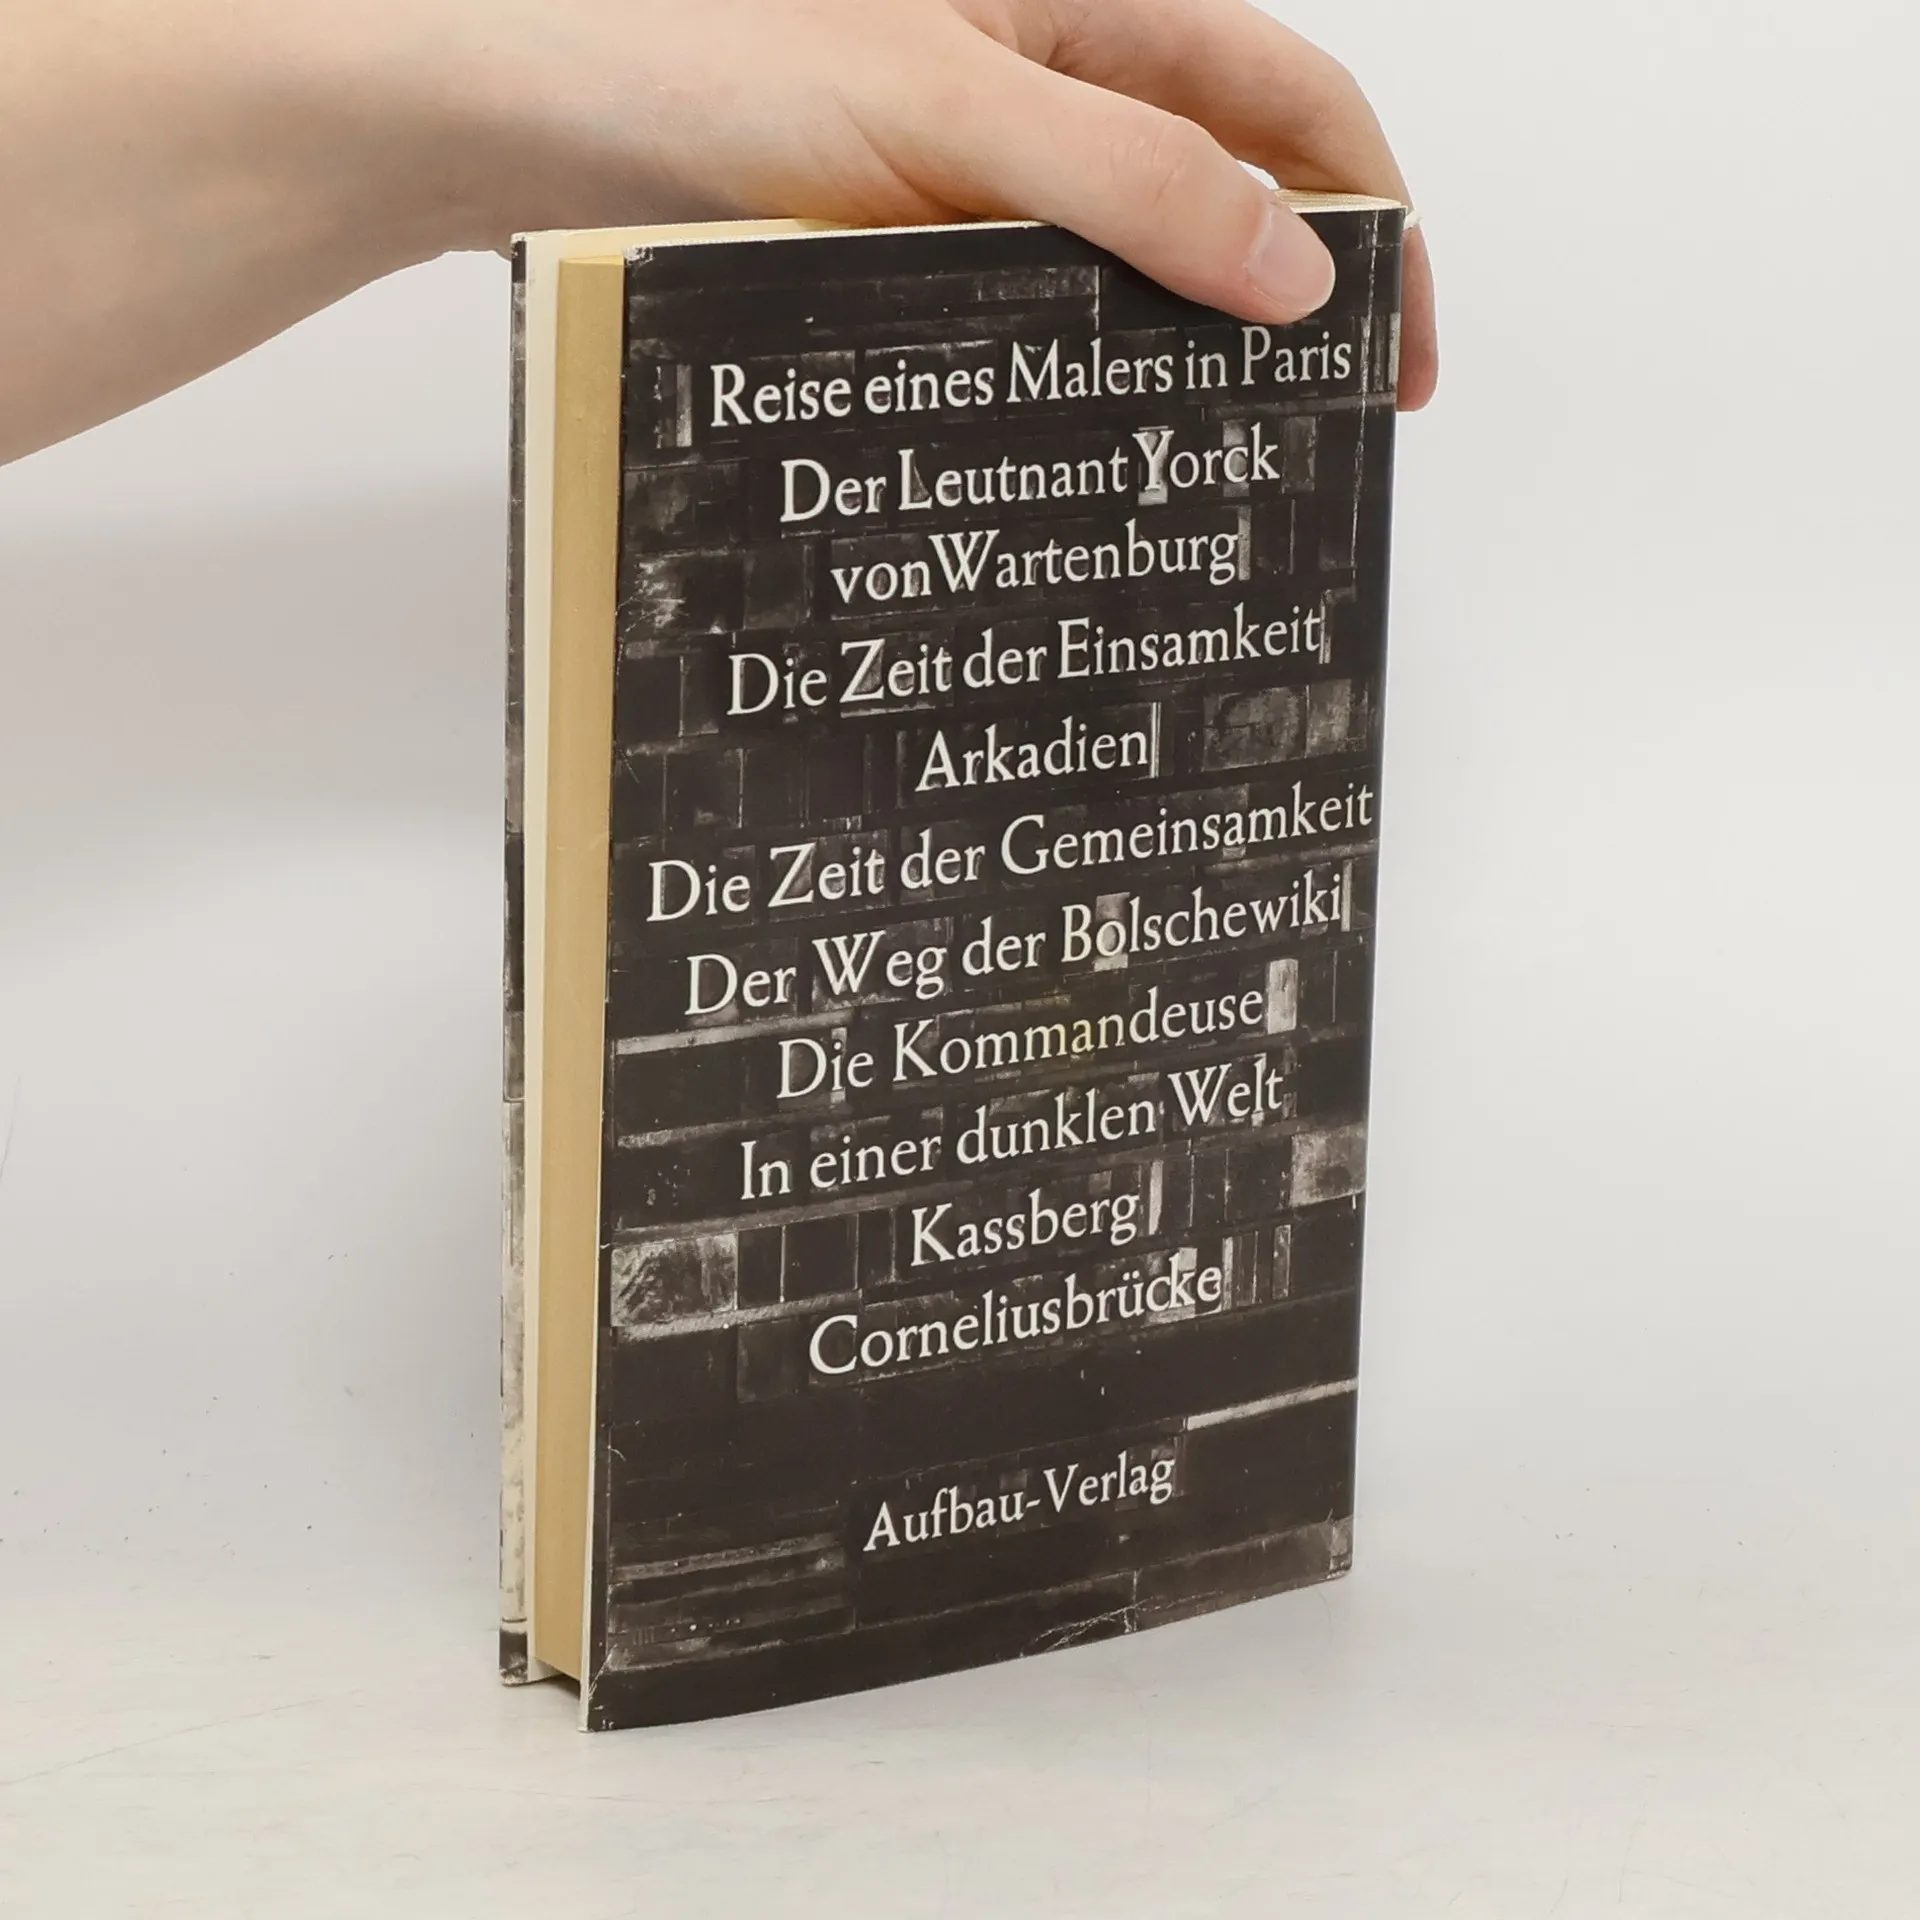 Reise eines Malers in Paris
Der Leutnant Yorck
von Wartenburg
Die Zeit der Einsamkeit
Arkadien
Die Zeit der Gemeinsamkeit
Der Weg der Bolschewiki
Die Kommandeuse
In einer dunklen Welt
Kassberg
Corneliusbrücke
Aufbau-Verlag